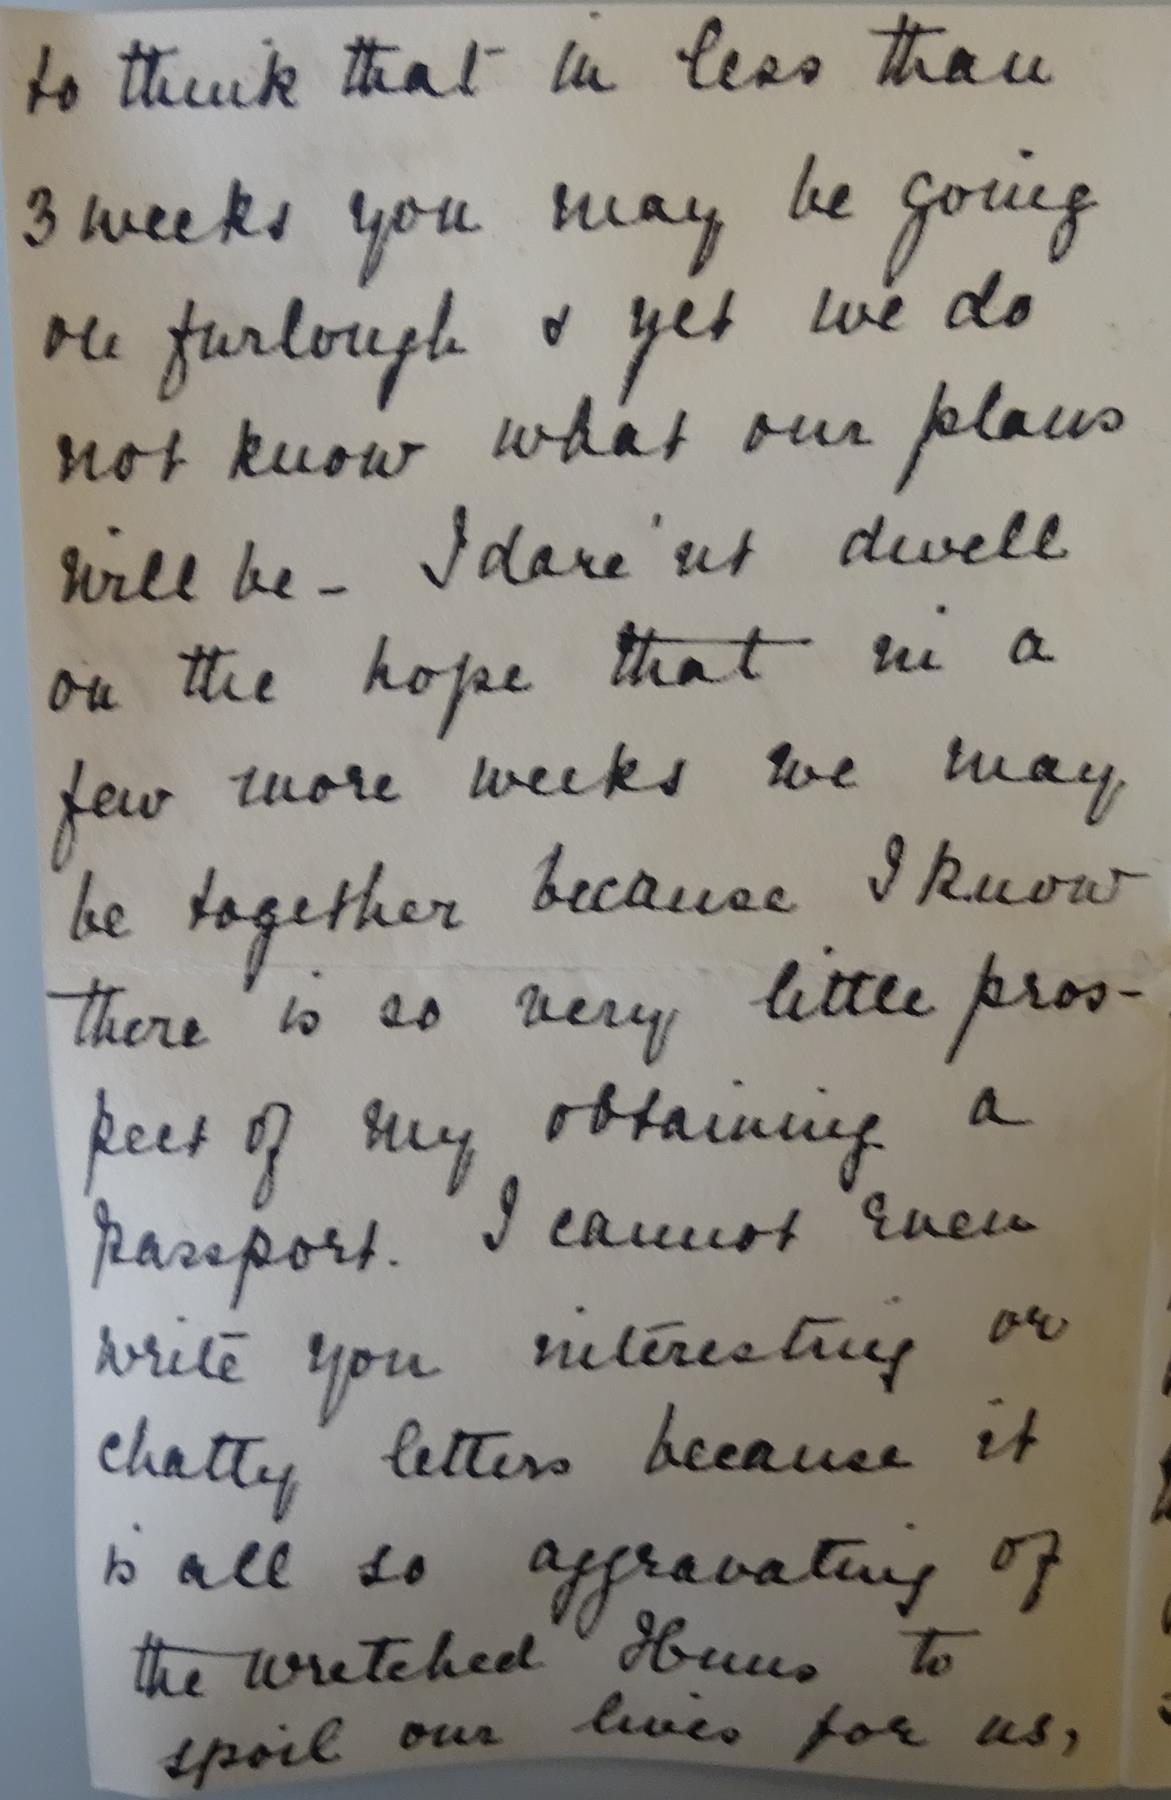 to think that in less than
3 weeks you may be going
on furlough & yet we do
not know what our plans
will be - I dare'nt dwell
on the hope that in a
few more weeks we may
be together because I know
there is so very little pros-
pect of my obtaining a
passport. I cannot even
write you interesting or
chatty letters because it
is all so aggravating of
the wretched Huns to
spoil our lives for us,